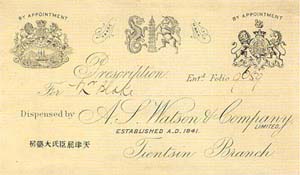 BY APPOINTMENT BY APPOINTMENT
Prescription
Entd. Folio
For Mr
Dispensed by A. S. Watson & Company
LIMITED,
ESTABLISHED A.D. 1841.
Tientsin Branch
房藥大氏臣屈津天